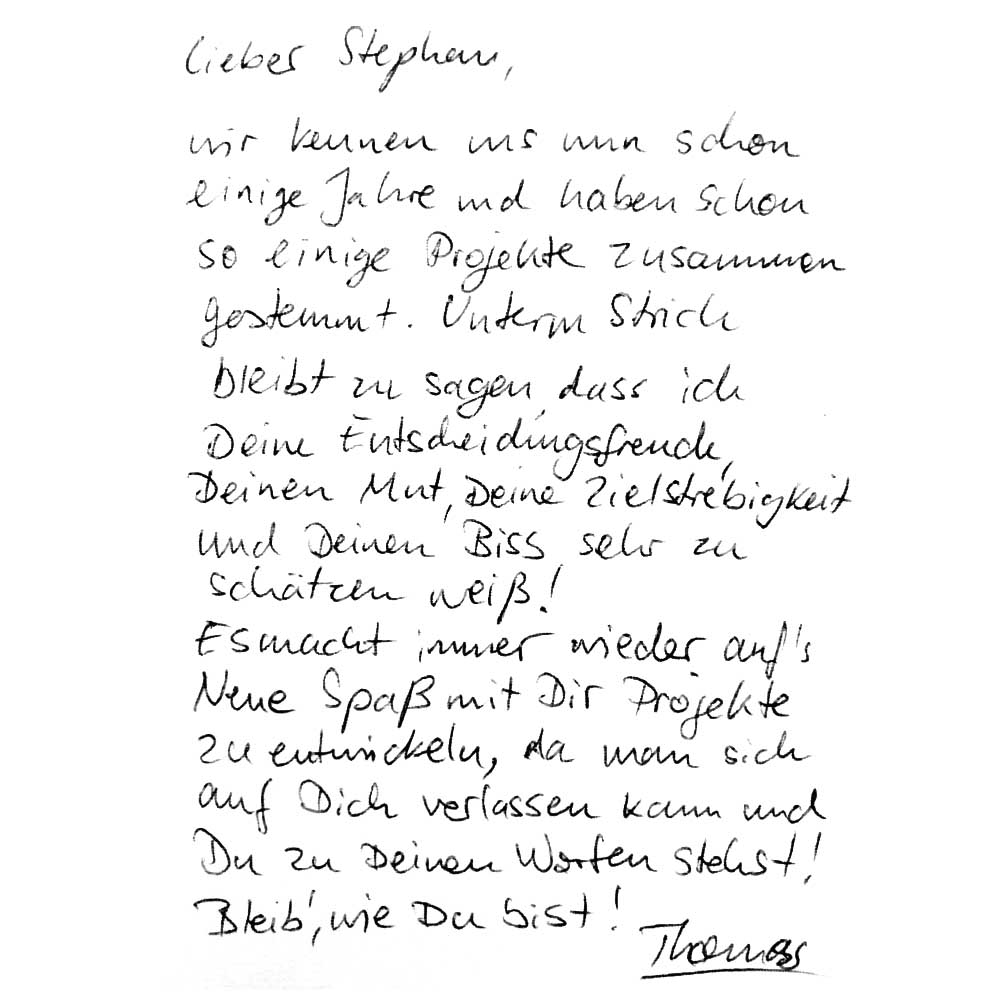 Lieber Stephan,
wir kennen uns nun schon
einige Jahre und haben schon
so einige Projekte zusammen
gestemmt. Unterm Strich
bleibt zu sagen, dass ich
Deine Entscheidungsfreude,
Deinen Mut, Deine Zielstrebigkeit
und Deinen Biss sehr zu
schätzen weiß!
Es macht immer wieder auf's
Neue Spaß mit Dir Projekte
zu entwickeln, da man sich
auf Dich verlassen kann und
Du zu Deinen Worten stehst!
Bleib', wie Du bist!
Thomas